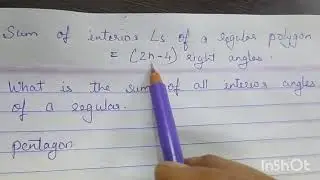 Sum of interior ∠s of a regular polygon
= (2n-4) right angles.
What is the sum of all interior angles
of a regular.
pentagon
InShot